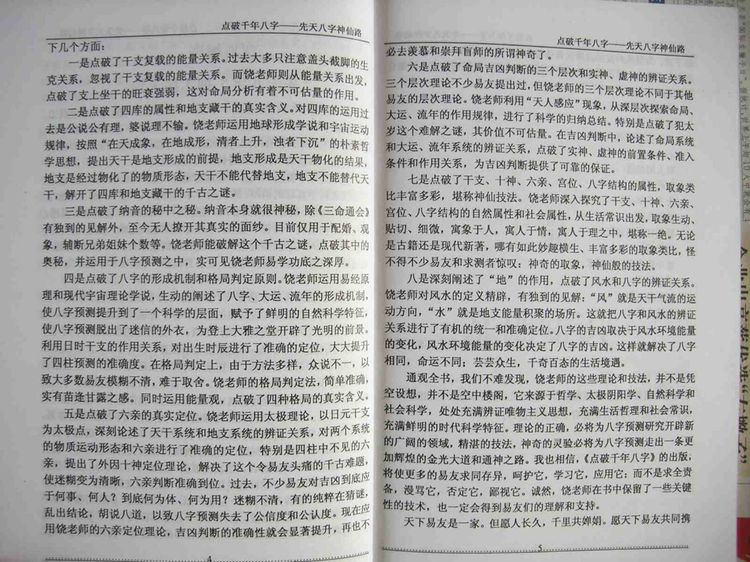 点破千年八字——先天八字神仙路
下几个方面：
一是点破了干支复载的能量关系。过去大多只注意盖头截脚的生
克关系，忽视了干支能量关系。而饶老师则从能量关系出发，
点破了支上坐干的旺衰强弱，这对命局分析有着不可估量的作用。
二是点破了四库的属性和地支藏干的真实含义。对四库的运用过
去是公说公有理，婆说理不输。饶老师运用地球形成学说和宇宙运动
规律，按照“在天成象，在地成形，清者上升，浊者下沉”的朴素哲
学思想，提出天干是地支形成的前提，地支形成是天干物化的结果，
地支是经过物化了的物质形态，天干不能代替地支，地支不能替代天
干，解开了四库和地支藏干的千古之谜。
三是点破了纳音的秘中之秘。纳音本身就很神秘，除《三命通会》
有独到的见解外，至今无人撩开其真实的面纱。目前仅用于配婚、观
象，辅断兄弟姐妹个数等。饶老师能破解这个千古之谜，点破其中的
奥秘，并运用于八字预测之中，实可见饶老师易学功底之深厚。
四是点破了八字的形成机制和格局判定原则。饶老师运用易经原
理和现代宇宙理论学说，生动的阐述了八字、大运、流年的形成机制，
使八字预测提升到了一个科学的层面，赋予了鲜明的自然科学特征，
使八字预测脱出了迷信的外衣，为登上大雅之堂开辟了光明的前景。
利用日时干支的作用关系，对出生时辰进行了准确的定位，大大提升
了四柱预测的准确度。在格局判定上，由于方法多样，众说不一，以
致大多数易友模糊不清，难于取舍。饶老师的格局判定法，简单准确，
实有苗逢甘露之感。同时运用能量观，点破了四种格局的真实含义。
五是点破了六亲的真实定位。饶老师运用太极理论，以日元干支
为太极点，深刻论述了天干系统和地支系统的辨证关系，对两个系统
的物质运动形态和六亲进行了准确的定位，特别是四柱中不见的六
亲，提出了外因十神定位理论，解决了这个令易友头痛的千古难题，
使迷糊变为清晰，六亲判断准确到位。过去，不少易友对吉凶到底应
于何事、何人？到底何为体、何为用？迷糊不清，有的纯粹在猜谜，
乱出结论，胡说八道，以致八字预测失去了公信度和公认度。现在应
用饶老师的六亲定位理论，吉凶判断的准确性就会显著提升，再也不
4
点破千年八字——先天八字神仙路
必去羡慕和崇拜盲师的所谓神奇了。
六是点破了命局吉凶判断的三个层次和实神、虚神的辨证关系。
三个层次理论不少易友提出过，但饶老师的三个层次理论不同于其他
易友的层次理论。饶老师利用“天人感应”现象，从深层次探索命局、
大运、流年的作用规律，进行了科学的归纳总结。特别是点破了犯太
岁这个难解之谜，其价值不可估量。在吉凶判断中，论述了命局系统
和大运、流年系统的辨证关系，点破了实神、虚神的前置条件、准入
条件和作用关系，为吉凶判断提供了可靠的保证。
七是点破了天干、十神、六亲、宫位、八字结构的属性，取象类
比丰富多彩，堪称神仙技法。饶老师深入探究了天干、十神、六亲、
宫位、八字结构的自然属性和社会属性，从生活常识出发，取象生动、
贴切、细微，寓象于人，寓人于情，寓人于理之中，堪称一绝。无论
是古籍还是现代新著，哪有如此妙趣横生、丰富多彩的取象类比，怪
不得不少易友和求测者惊叹：神奇的取象，神仙般的技法。
八是深刻阐述了“地”的作用，点破了风水和八字的辨证关系。
饶老师对风水的定义精辟，有独到的见解：“风”就是天干气流的运
动方向，“水”就是地支能量积聚的场所。这就把八字和风水的辨证
关系进行了有机的统一和准确定位。八字的吉凶取决于风水环境能量
的变化，风水环境能量的变化决定了八字的吉凶。这样就解决了八字
相同，命运不同；芸芸众生，千奇百态的生活境遇。
通观全书，我们不难发现，饶老师的这些理论和技法，并不是凭
空设想，并不是空中楼阁，它来源于哲学、太极阴阳学、自然科学和
社会科学，处处充满辨证唯物主义思想，充满生活哲理和社会常识，
充满鲜明的时代科学特征。理论的正确，必将为八字预测研究开辟新
的广阔的领域，精湛的技法，神奇的灵验必将为八字预测走出一条更
加辉煌的金光大道和通神之路。我也相信，《点破千年八字》的出版，
将使更多的易友求同存异，呵护它，学习它，应用它；而不是求全责
备，谩骂它，否定它，鄙视它。诚然，饶老师在书中保留了一些关键
性的技术，也一定会得到易友们的理解和支持。
天下易友是一家。但愿人长久，千里共婵娟。愿天下易友共同携
5